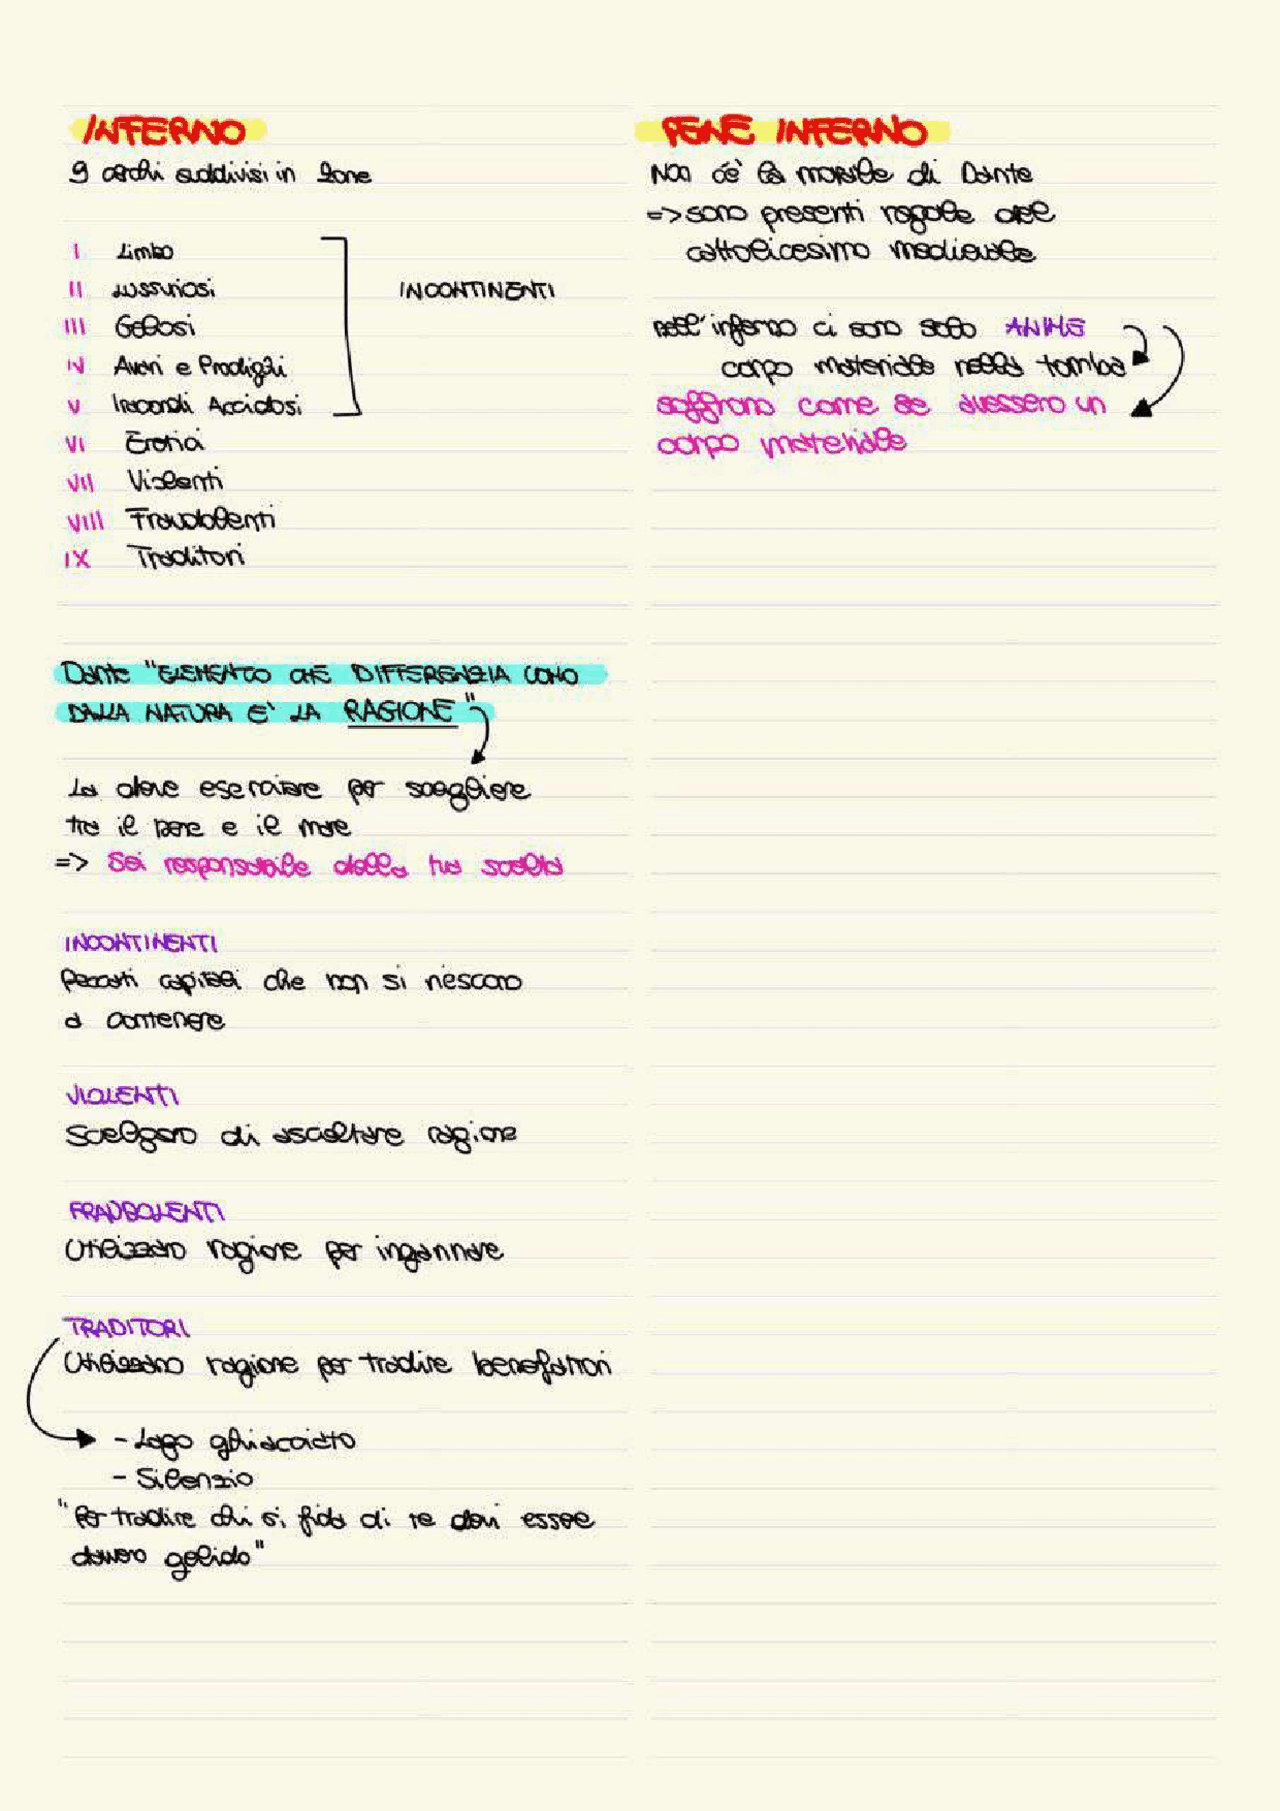 INFERNO
9 cerchi suddivisi in zone
I Limbo
II Lussuriosi
III Golosi
IV Avari e Prodighi
V Iracondi Accidiosi
INCONTINENTI
VI Eretici
VII Violenti
VIII Fraudolenti
IX Traditori
Dante "ELEMENTO CHE DIFFERENZIA UOMO
DALLA NATURA E' LA RAGIONE"
La deve esercitare per scegliere
tra il bene e il male
=> Sei responsabile della tua scelta
INCONTINENTI
Peccati capitali che non si riescono
a contenere
VIOLENTI
Scelgono di ascoltare ragione
FRAUDOLENTI
Utilizzano ragione per ingannare
TRADITORI
Utilizzano ragione per tradire benefattori
- Lago ghiacciato
- Silenzio
"Per tradire chi si fida di te devi essere
davvero gelido"
PENE INFERNO
Non c'è la morale di Dante
=> sono presenti regole del
cattolicesimo medievale
nell'inferno ci sono solo ANIME
corpo materiale nella tomba
soffrono come se avessero un
corpo materiale